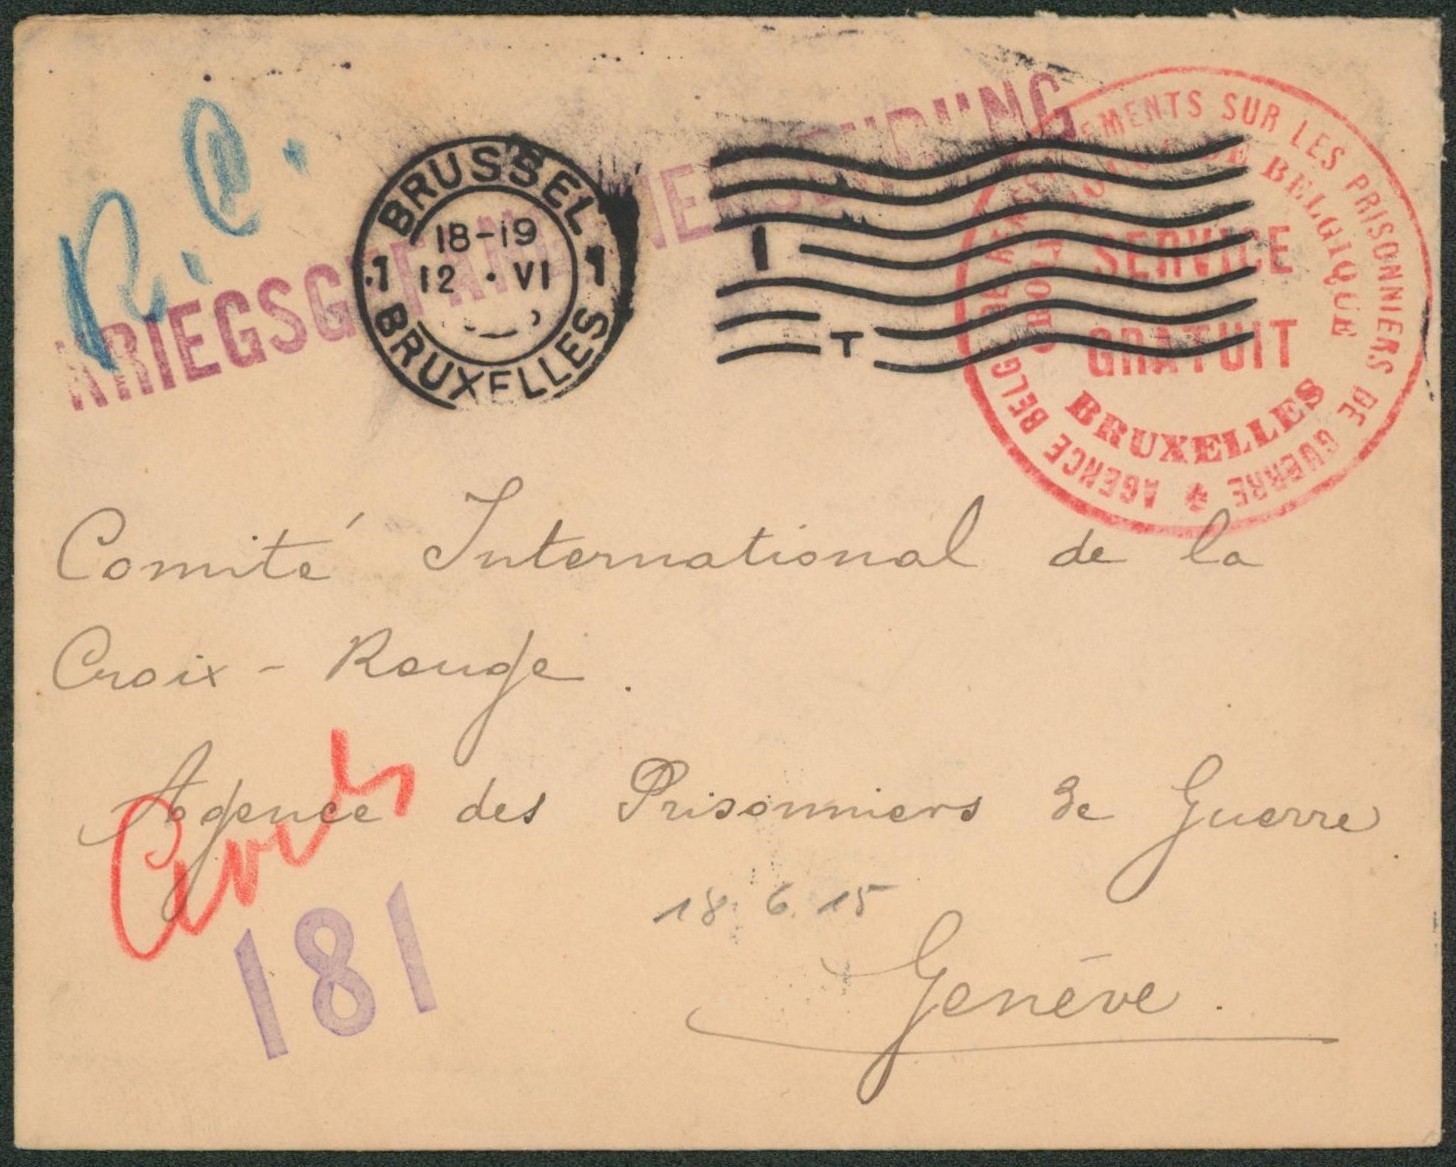 R.C.
KRIEGSGEFANGENENSENDUNG
BRUSSEL
1 18-19 1
12 · VI
BRUXELLES
1
T
AGENCE BELGE DE RENSEIGNEMENTS SUR LES PRISONNIERS DE GUERRE
CROIX ROUGE DE BELGIQUE
SERVICE
GRATUIT
BRUXELLES
Comité International de la
Croix - Rouge.
Agence des Prisonniers de Guerre
Civils
18. 6. 15
181
Genève.